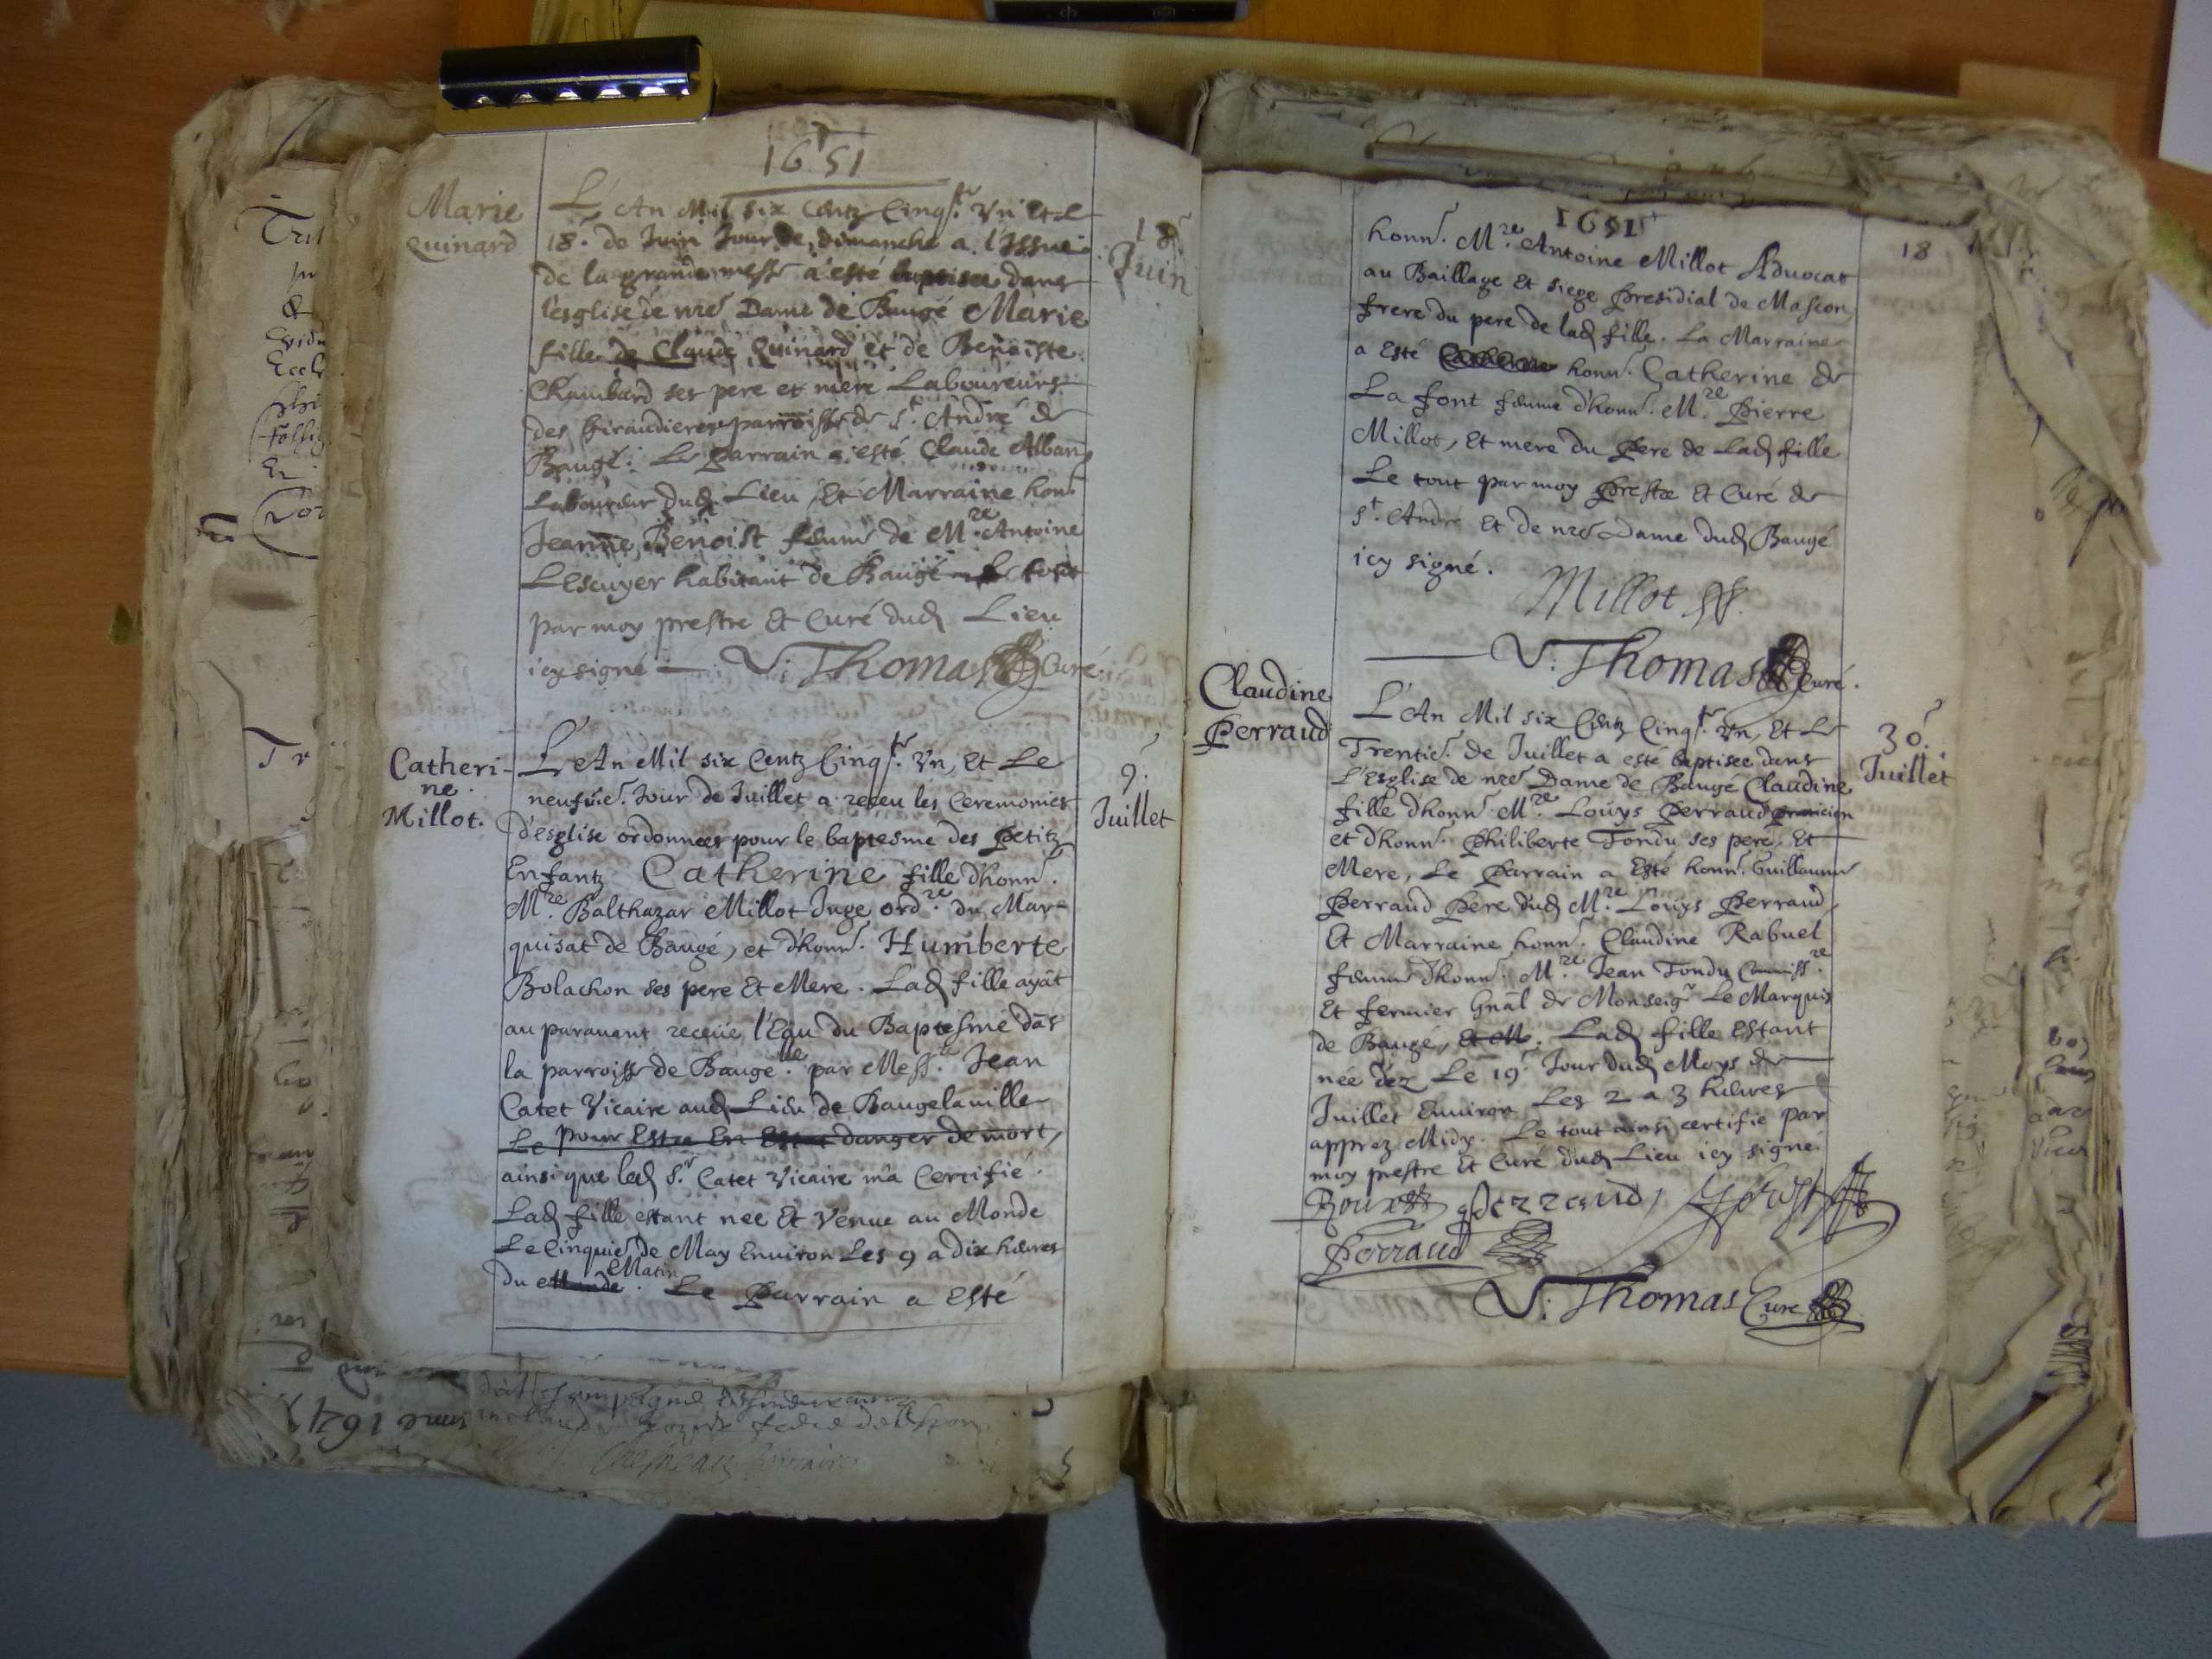 1651
Marie
Quinard
L'An Mil six Centz Cinqte. Vn et Le
18. de Juin Jour de dimanche a l'Issue
de la grande messe a esté baptisee dans
l'esglise de nre Dame de Baugé Marie
fille de Claude Quinard et de Benoiste
Chambard ses pere et mere Laboureurs
des Giraudieres parroisse de St. André de
Baugé. Le Parrain a esté Claude Alban
Laboureur dud. Lieu, Et Marraine honn.
Jeanne Benoist femme de Mre. Antoine
Lescuyer habitant de Baugé Le tout
par moy prestre Et Curé dud. Lieu
icy signé V. Thomas Curé.
18
Juin
Catheri-
ne
Millot.
L'An Mil six Centz Cinqte. Vn, Et Le
neufie. Jour de Juillet a receu les Ceremonies
d'esglise ordonnees pour le baptesme des Petitz
Enfantz Catherine fille d'honn.
Mre. Balthazar Millot Juge ordre. du Mar-
quisat de Baugé, et d'honn. Humberte
Bolachon ses pere Et Mere. Lad. fille ayāt
au parauant receüe l'Eau du Baptesme dās
la parroisse de Bauge lle. par Messe. Jean
Catet Vicaire aud. Lieu de Baugelauille
Le pour Estre En Estat danger de mort,
ainsi que led. Sr. Catet Vicaire m'a Certifié.
Lad. fille estant nee Et Venue au Monde
Le Cinquie. de May Enuiron Les 9 a dix heures
du Monde Matin. Le Parrain a Esté
9.
Juillet
1651
18
honn. Mre. Antoine Millot Aduocat
au Baillage Et siege Presidial de Mascon
frere du pere de lad. fille. La Marraine
a Esté honn. Catherine de
La font femme d'honn. Mre. Pierre
Millot, Et mere du Pere de Lad. fille
Le tout par moy Prestre Et Curé de
St. André Et de nre Dame dud. Baugé
icy signé.
Millot
V. Thomas Curé.
Claudine
Perraud
L'An Mil six Centz Cinqte. Vn, Et Le
Trentie. de Juillet a esté baptisee dans
L'Esglise de nre Dame de Baugé Claudine
fille d'honn. Mre. Louys Perraud praticien
et d'honn. Philiberte Tondu ses pere, Et
Mere, Le Parrain a Esté honn. Guillaume
Perraud Pere dud. Mre. Louys Perraud,
Et Marraine honn. Claudine Rabuel
femme d'honn. Mre. Jean Tondu Commissre.
Et fermier Gnāl de Monseigr. Le Marquis
de Baugé, Et M. Lad. fille Estant
née dez Le 19e. Jour dud. Moys de
Juillet Enuiron Les 2 a 3 heures
apprez Midy. Le tout ainsi certifie par
moy prestre Et Curé dud. Lieu icy signé.
Perraud
Perraud
V. Thomas Curé
30.
Juillet